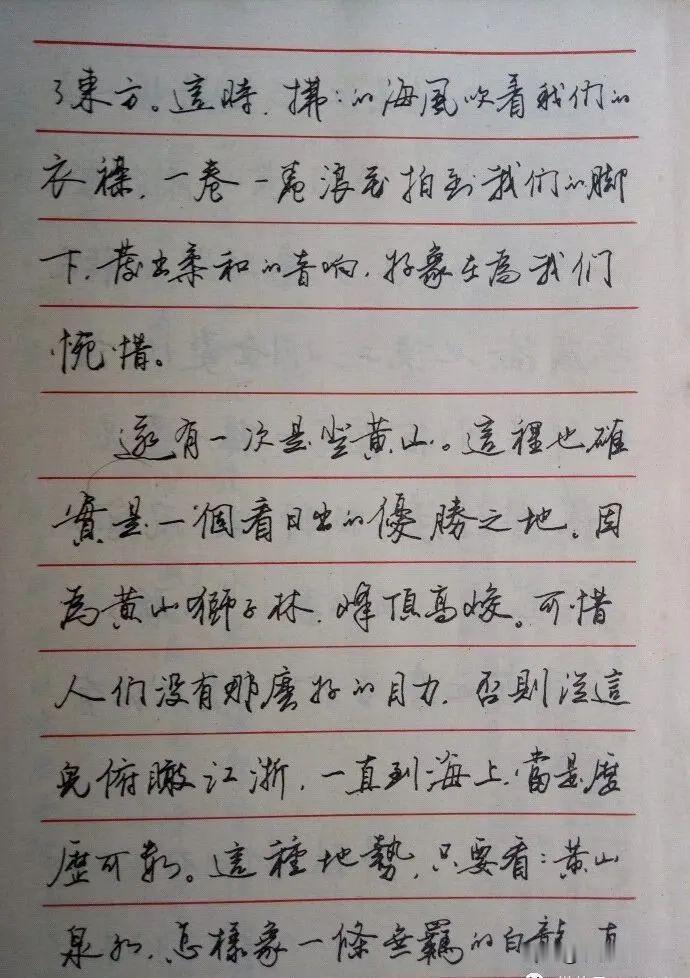 了東方。這時，拂：的海風吹着我們的
衣襟，一卷一卷浪花拍到我們的脚
下，發出柔和的音响，好象在為我们
惋惜。
還有一次是登黄山。這裡也確
實是一個看日出的優勝之地。因
為黄山獅子林，峰頂高峻。可惜
人们没有那麼好的目力，否則從這
兒俯瞰江浙，一直到海上，當是歷
歷可數。這種地勢，只要看：黄山
泉水，怎樣象一條無羈的白龍，直